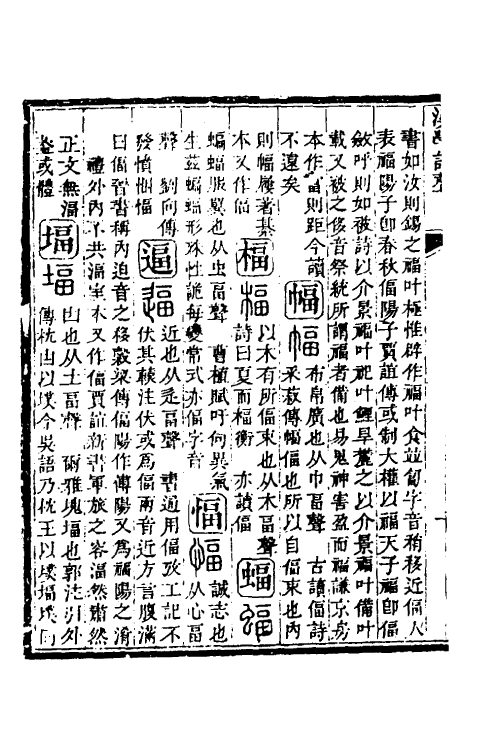 漢學諧聲
書如汝則錫之福叶極惟辟作福叶食竝匐字音稍移近偪人
表福陽子卽春秋偪陽子賈誼傳或制大權以福天子福卽偪
斂呼則如彼詩以介景福叶祀叶鯉旱麓之以介景福叶備叶
載又彼之侈音祭統所謂福者備也易鬼神害盈而福謙京房
本作富則距今讀
不遠矣
幅 幅
布帛廣也从巾畐聲 古讀偪詩
采菽傳幅偪也所以自偪束也內
則幅屨著綦
木又作偪
楅 楅
以木有所偪束也从木畐聲
詩曰夏而楅衡 亦讀偪
蝠 蝠
蝙蝠服翼也从虫畐聲 曹植賦吁何異氣
生茲蝙蝠形殊性詭每變常式亦偪字音
愊 愊
誠志也
从心畐
聲 劉向傳
發憤悃愊
逼 逼
近也从辵畐聲 書通用偪攷工記不
伏其轅注伏或爲偪兩音近方言腹滿
曰偪習習稱內迫音之移穀梁傳偪陽作傅陽又爲福陽之淆
禮外內不共湢室本又作偪賈誼新書軍旅之容湢然肅然
正文無湢
蓋或體
堛 堛
凷也从土畐聲 爾雅塊堛也郭注引外
傳枕凷以墣今吳語乃枕王以墣堛墣同